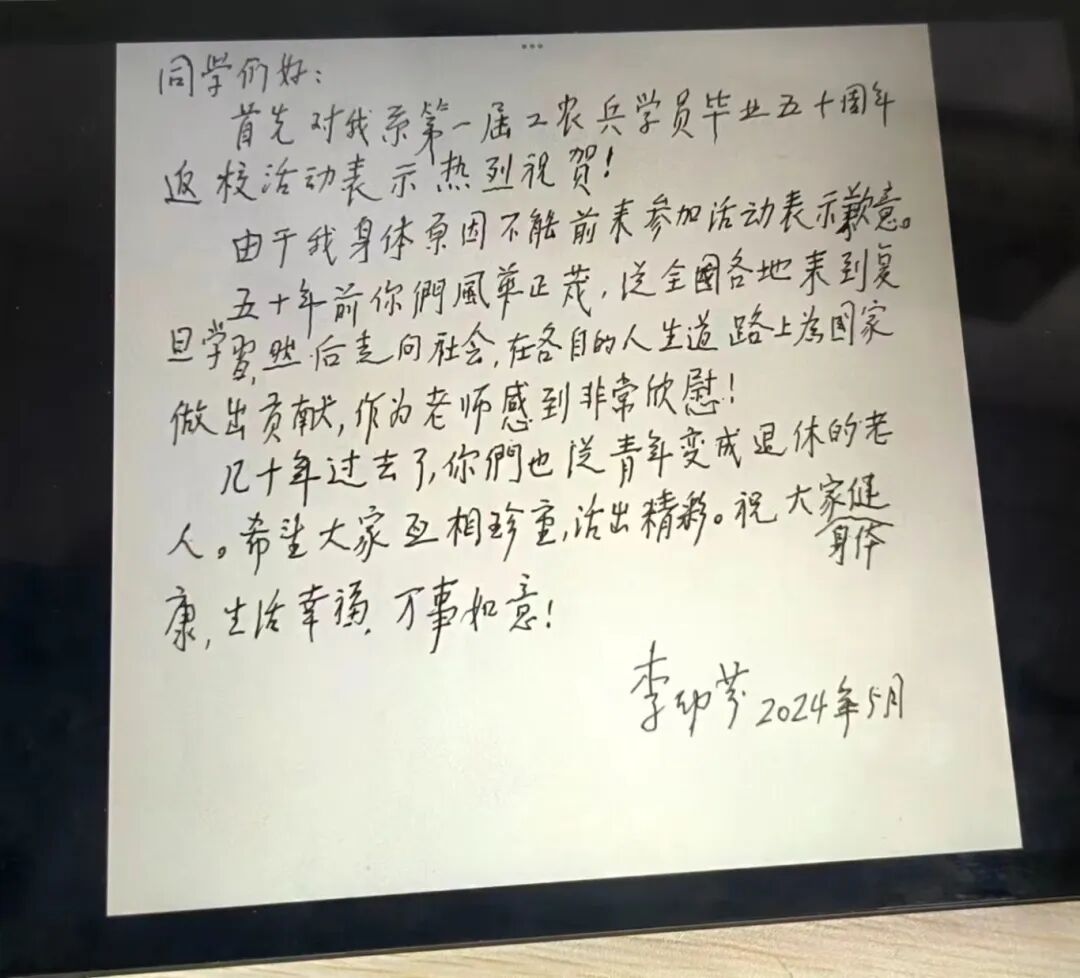 同学们好：
首先对我系第一届工农兵学员毕业五十周年
返校活动表示热烈祝贺！
由于我身体原因不能前来参加活动表示歉意。
五十年前你們風华正茂，从全國各地来到复
旦学習，然后走向社会，在各自的人生道路上為国家
做出贡献，作为老师感到非常欣慰！
几十年过去了，你們也从青年变成退休的老
人。希望大家互相珍重，活出精彩。祝大家健
身体
康，生活幸福，万事如意！
李幼芬 2024年5月